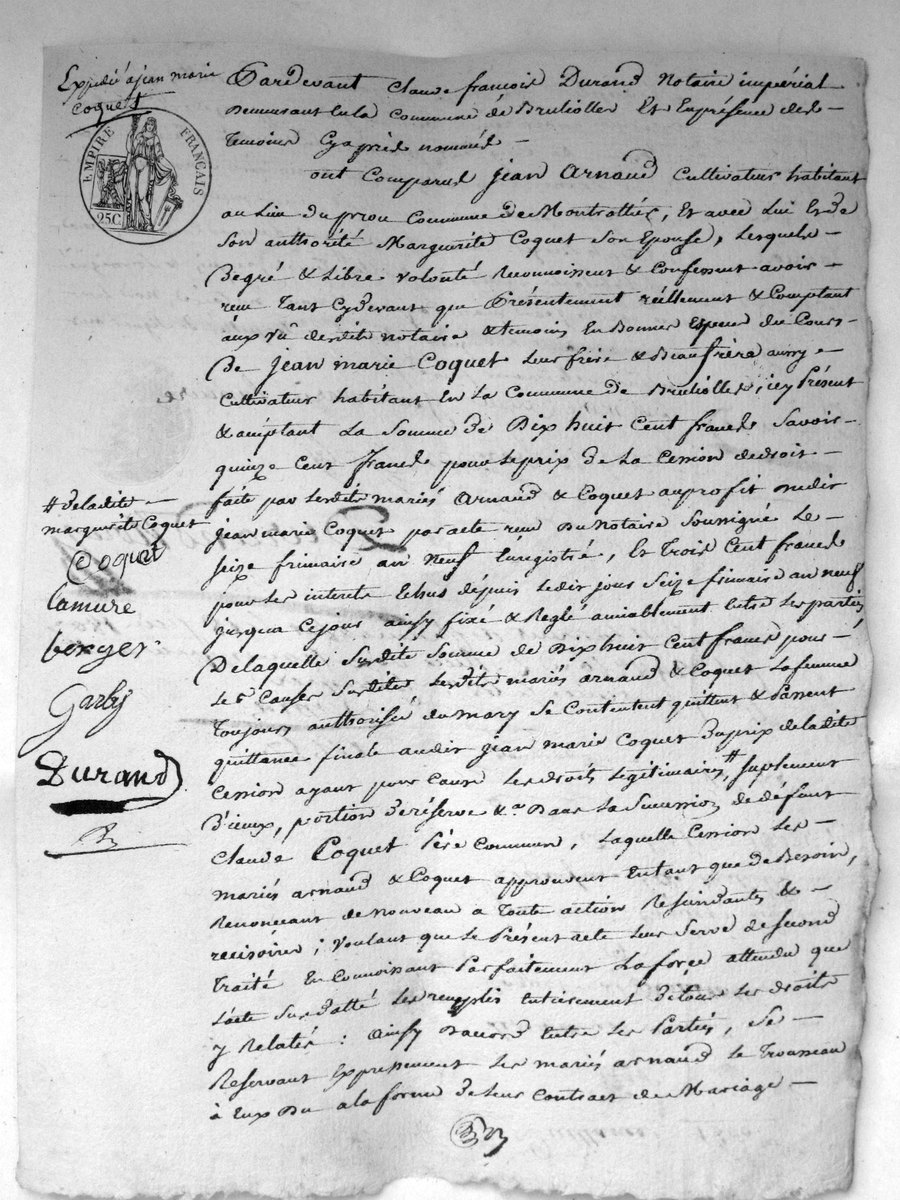 Expédié a jean marie
coquet
EMPIRE FRANÇAIS
25C
Pardevant Claude françois Durand Notaire impérial
Demeurant en la Commune de Brullioles Et En présence des
Temoins Cy après nommés
ont Comparus jean Arnaud Cultivateur habitant
au Lieu du Commune de Montrottier, Et avec Lui Et de
Son authorité Marguerite Coquet Son Epouse, Lesquels
De gré & Libre Volonté Reconnoissent & Confessent avoir
reçu Tant Cydevant que Présentement réellement & Comptant
aux Vu desdits notaire & temoins En Bonnes Espece du Cours
De jean marie Coquet Leur frère & Beaufrère aussy
Cultivateur habitant En La Commune de Brullioles, icy Présent
& acceptant La Somme de Dix huit Cent francs Savoir
quinze Cent francs pour Le prix de La Cession de droit
faite par Lesdits mariés Arnaud & Coquet au profit dudit
jean marie Coquet par acte reçu Du Notaire Soussigné Le
Seize frimaire an Neuf Enregistré, Et Trois Cent francs
pour Les interets Echus dépuis Ledit jour Seize frimaire an neuf
jusqua Cejour ainsy fixé & Réglé amiablement Entre Les parties
De laquelle Susdite Somme de Dix huit Cent francs pour
Les Causes Susdites Lesdits mariés arnaud & Coquet La femme
Toujours authorisée du mary Se Contentent quittent & Passent
quittance finale audit jean marie Coquet du prix de ladite
Cession ayant pour Cause Les droits Légitimaires # suplement
D'iceux, portion de réserve &a. Dans La Succession de défunt
Claude Coquet Père Commun, Laquelle Cession Les
mariés arnaud & Coquet approuvent En tant que de Besoin,
Renonceant de nouveau a Toute action Rescindante &
rescisoire; Voulant que Le Présent acte Leur Serve de Second
Traité En Connoissant Parfaitement La force attendu que
L'acte Susdatté Les remplis Entièrement de tous Les droits
y Relatés: ainsy Daccord Entre Les Parties, Se
Reservant Expressement Les mariés arnaud Le Trousseau
à Eux Du a la forme de Leur Contract de Mariage
# de ladite
marguerite Coquet
Coquet
Lamure
berger
Garby
Durand